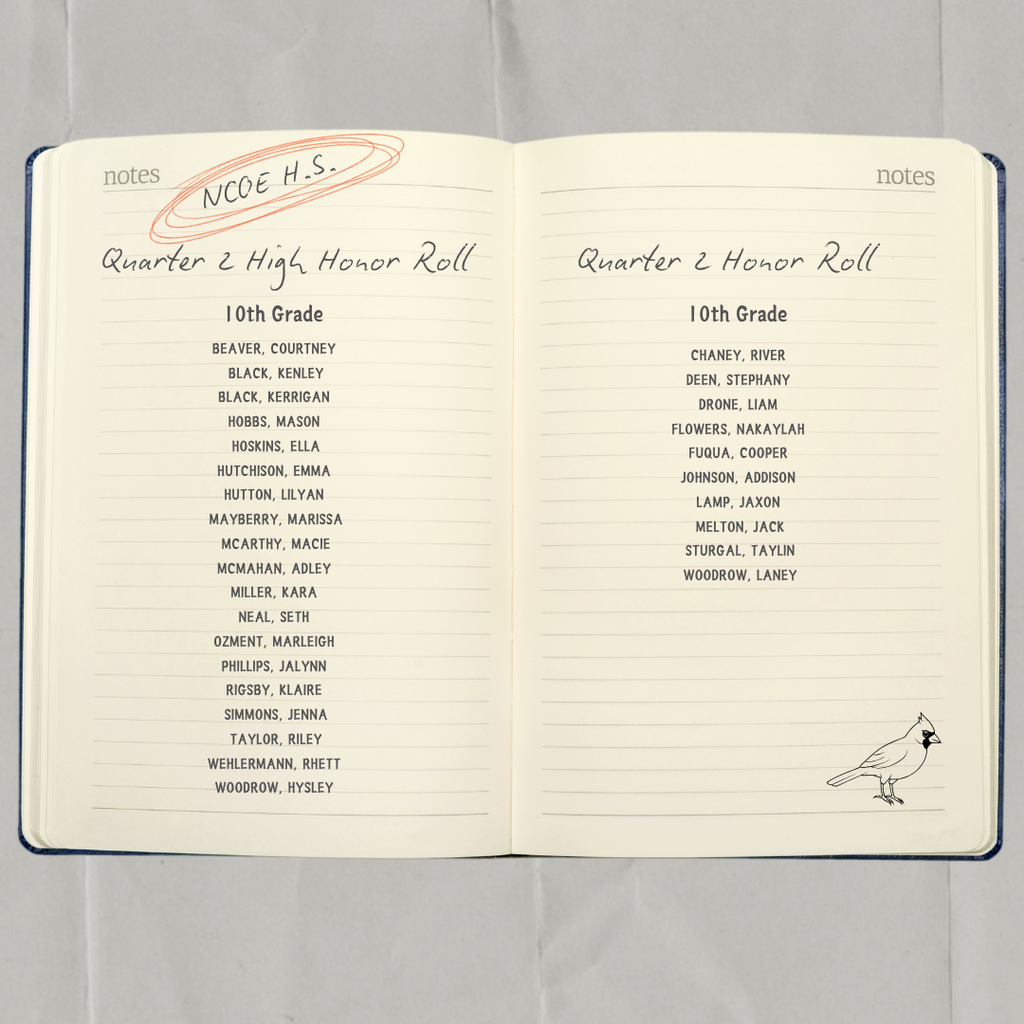 notes
NCOE H.S.
Quarter 2 High Honor Roll
10th Grade
BEAVER, COURTNEY
BLACK, KENLEY
BLACK, KERRIGAN
HOBBS, MASON
HOSKINS, ELLA
HUTCHISON, EMMA
HUTTON, LILYAN
MAYBERRY, MARISSA
MCARTHY, MACIE
MCMAHAN, ADLEY
MILLER, KARA
NEAL, SETH
OZMENT, MARLEIGH
PHILLIPS, JALYNN
RIGSBY, KLAIRE
SIMMONS, JENNA
TAYLOR, RILEY
WEHLERMANN, RHETT
WOODROW, HYSLEY
notes
Quarter 2 Honor Roll
10th Grade
CHANEY, RIVER
DEEN, STEPHANY
DRONE, LIAM
FLOWERS, NAKAYLAH
FUQUA, COOPER
JOHNSON, ADDISON
LAMP, JAXON
MELTON, JACK
STURGAL, TAYLIN
WOODROW, LANEY